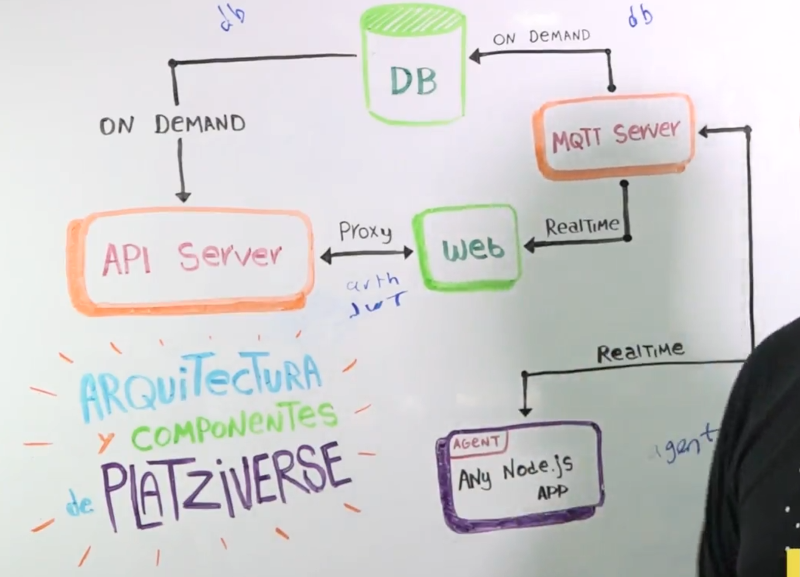 db
db
ON DEMAND
DB
ON DEMAND
MQTT Server
API Server
Proxy
Web
RealTiMe
auth
JWT
RealTiMe
ARQuiTecTURA
y COMPONENTES
de PLATZiVERSE
AGENT
ANy Node.js
APP
agent